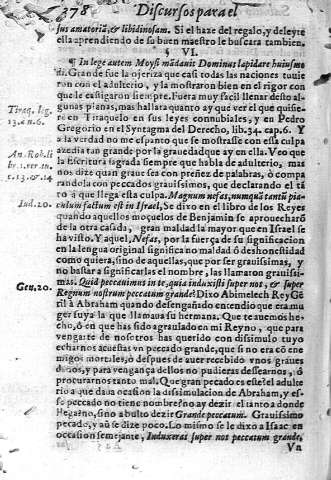 378 Discursos para el
sus amatoria, & libidinosam. Si el haze del regalo, y deleyte
ella aprendiendo de su buen maestro le buscara tambien.
¶ VI.
In lege autem Moyses mãdauit Dominus lapidare huiusmo
di. Grande fue la ojeriza que casi todas las naciones tuuie
ron con el adulterio, y la mostraron bien en el rigor con
que le castigaron siempre. Fuera muy facil llenar desto al-
gunas planas, mas hallara quanto ay que ver el que quisie-
Tiraq. leg. 13. en. 6.
re en Tiraquelo en sus leyes connubiales, y en Pedro
Gregorio en el Syntagma del Derecho, lib. 34. cap. 6. Y
a la verdad no me espanto que se mostrasse con esta culpa
azedia tan grande por la grauedad que ay en ella. Veo que
la Escritura sagrada siempre que habla de adulterio, mas
nos dize quan graue sea con preñez de palabras, ò compa
randola con peccados grauissimos, que declarando el tã
to a que llega esta culpa. Magnum nefas, numquã tanti pia-
Iud. 20.
culum factum est in Israel, se dixo en el libro de los Reyes
quando aquellos moçuelos de Benjamin se aprouecharõ
de la otra casada, gran maldad la mayor que en Israel se
ha visto. Y aquel, Nefas, por la fuerça de su significacion
en la lengua original significa no maldad ò deshonestidad
como quiera, sino de aquellas, que por ser grauissimas, y
no bastar a significarlas el nombre, las llamaron grauissi-
mas. Quid peccauimus in te, quia induxisti super nos, & super
Gen. 20.
Regnum nostrum peccatum grande? Dixo Abimelech Rey Ge
ril à Abraham quando desengañado entendio que era mu
ger suya la que llamaua su hermana. Que te auemos he-
cho, ò en que has sido agrauiado en mi Reyno, que para
vengarte de nosotros has querido con dissimulo tuyo
echarnos acuestas vn peccado grande, que si no era cõ ene
migos mortales, ò despues de auer recebido vnos graues
daños, y para vengança dellos no pudieras dessearnos, ò
procurarnos tanto mal. Que gran pecado es este? el adulte
rio a que daua ocasion la dissimulacion de Abraham, y es-
se peccado no tiene nombre? no ay dezir el tanto a donde
llega? no, sino a bulto dezir Grande peccatum. Grauissimo
pecado, y aũ se dize poco. Lo mismo se le dixo a Isaac en
occasion semejante, Induxeras super nos peccatum grande.
Vn